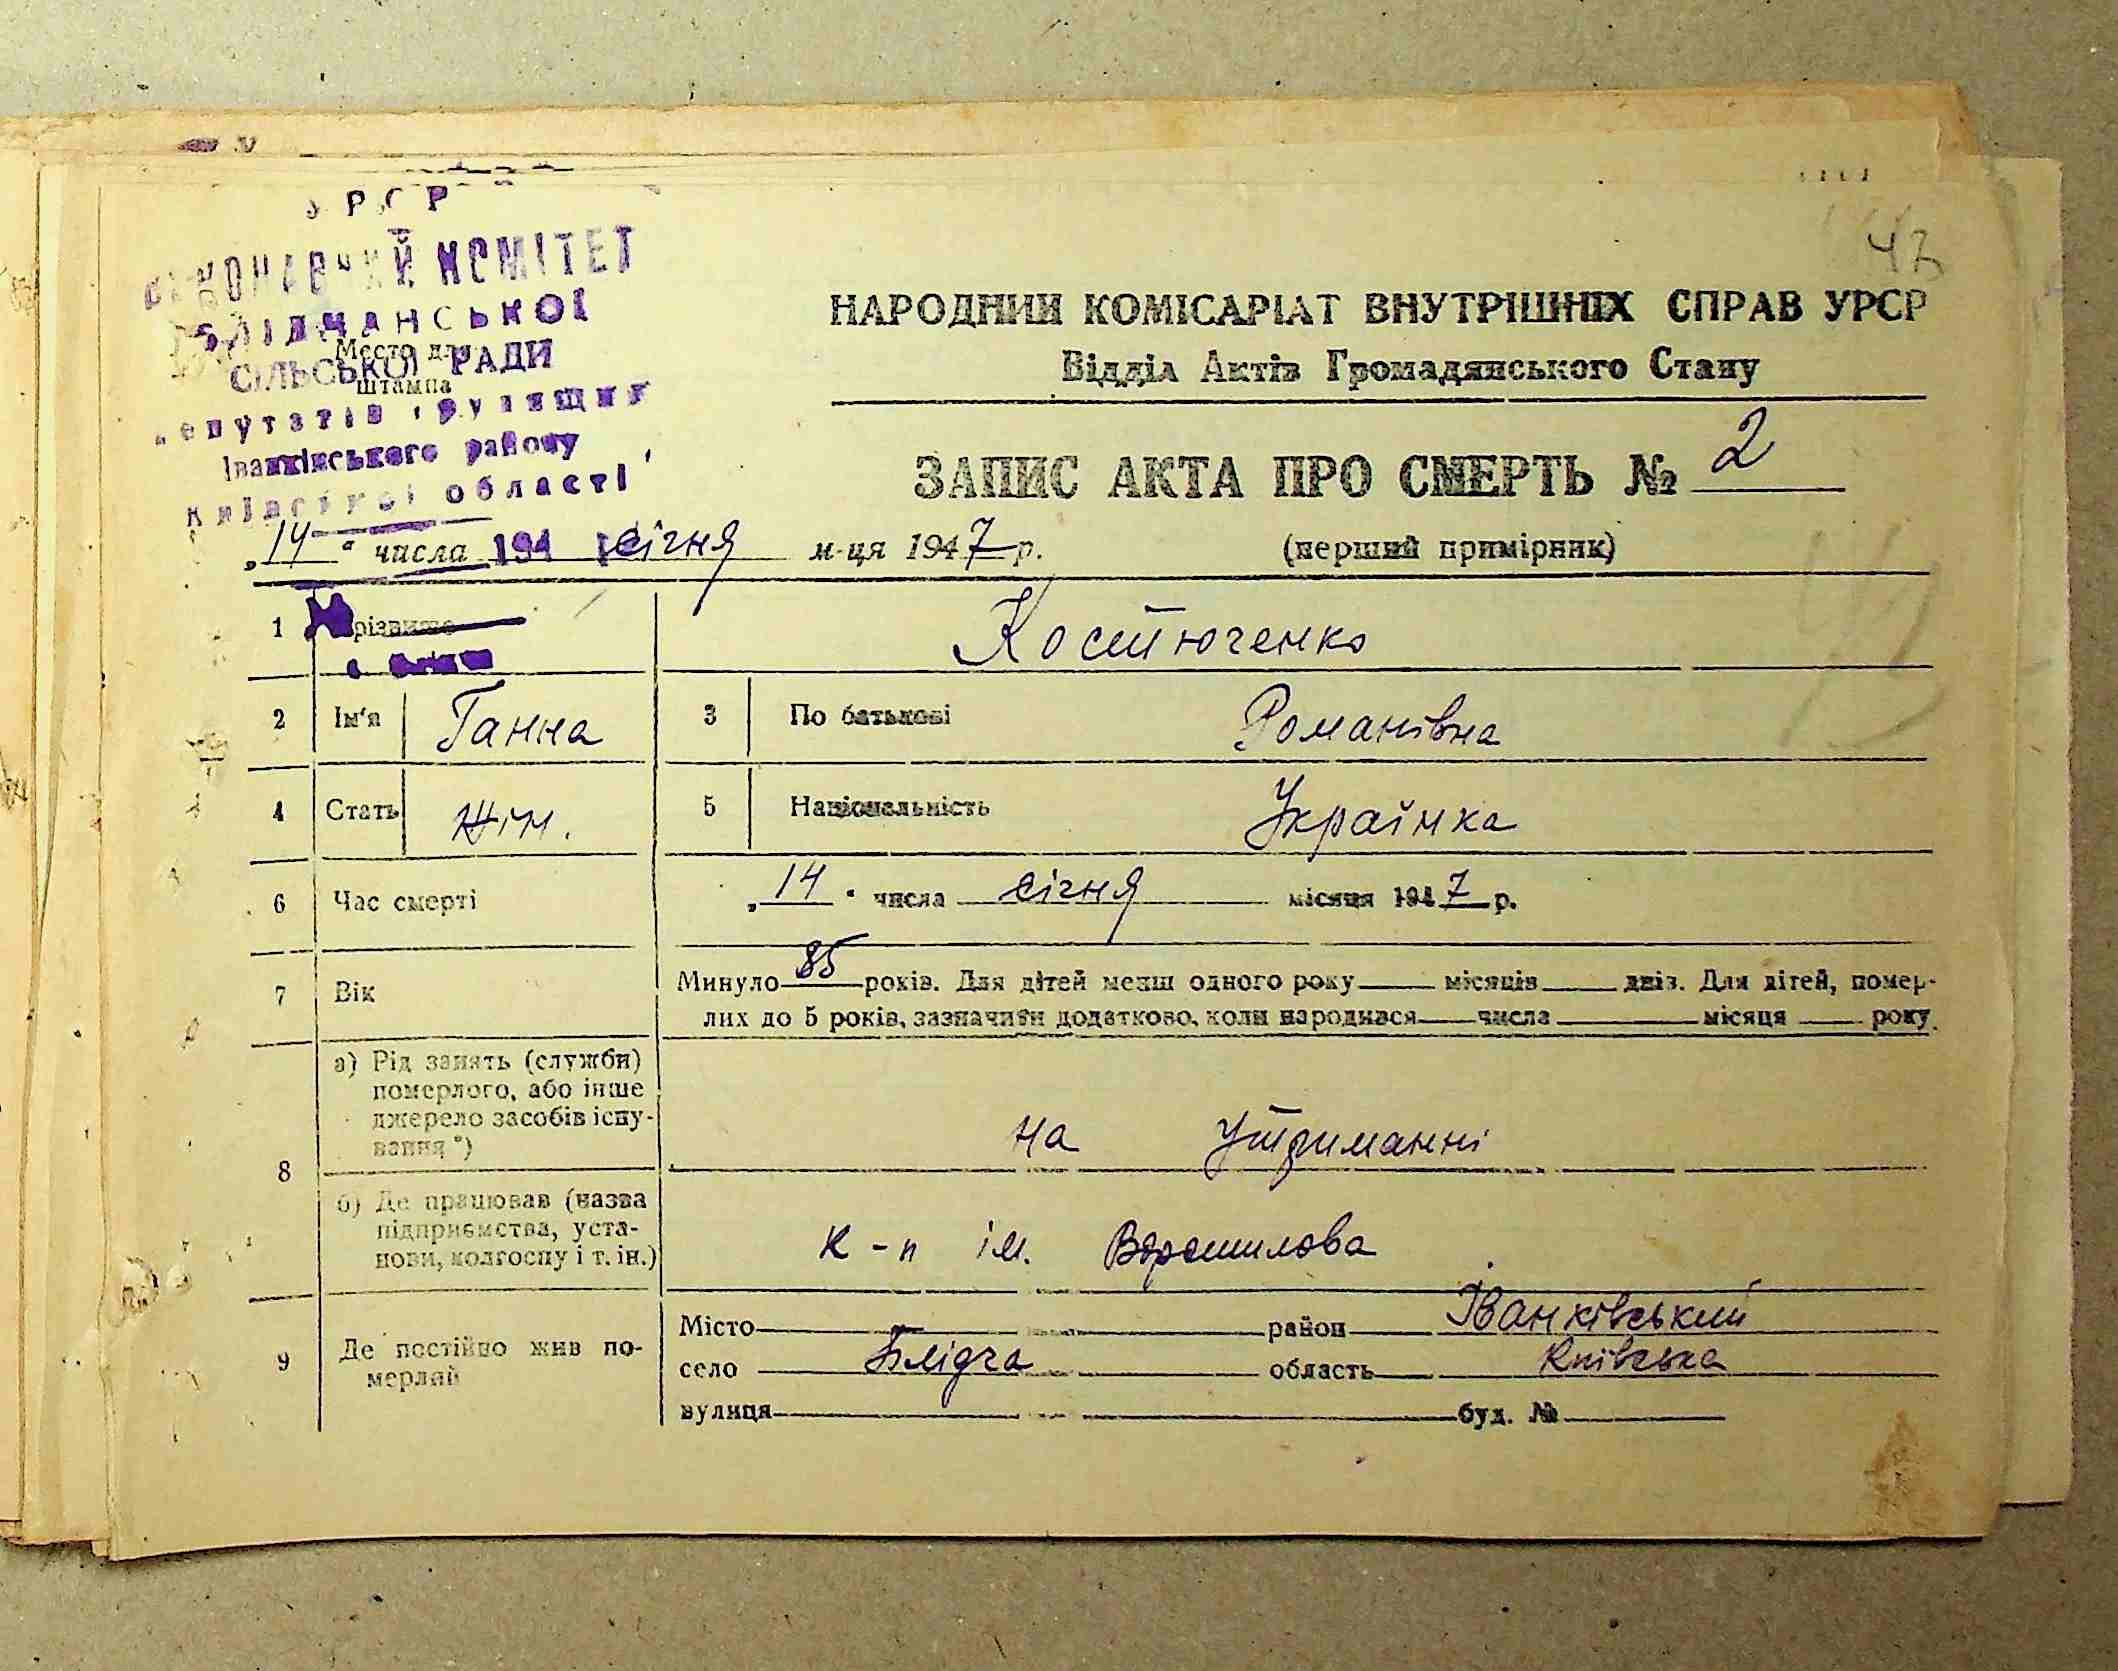 УРСР
ВИКОНАВЧИЙ КОМІТЕТ
БЛІДЧАНСЬКОЇ
Место для
СІЛЬСЬКОЇ РАДИ
штампа
депутатів трудящих
Іванківського району
Київської області
43
НАРОДНИЙ КОМІСАРІАТ ВНУТРІШНІХ СПРАВ УРСР
Відділ Актів Громадянського Стану
ЗАПИС АКТА ПРО СМЕРТЬ № 2
„14" числа 194 січня м-ця 1947 р. (перший примірник)
1 Прізвище Костюченко
2 Ім'я Ганна 3 По батькові Романівна
4 Стать жін. 5 Національність Українка
6 Час смерті „14" числа січня місяця 1947 р.
7 Вік Минуло 85 років. Для дітей менш одного року місяців днів. Для дітей, помер-
лих до 5 років, зазначити додатково, коли народився числа місяця року
8 а) Рід занять (служби)
померлого, або інше
джерело засобів існу-
вання*) на утриманні
б) Де працював (назва
підприємства, уста-
нови, колгоспу і т. ін.) к-п ім. Ворошилова
9 Де постійно жив по-
мерлий
Місто район Іванківський
село Блідча область Київська
вулиця буд. №